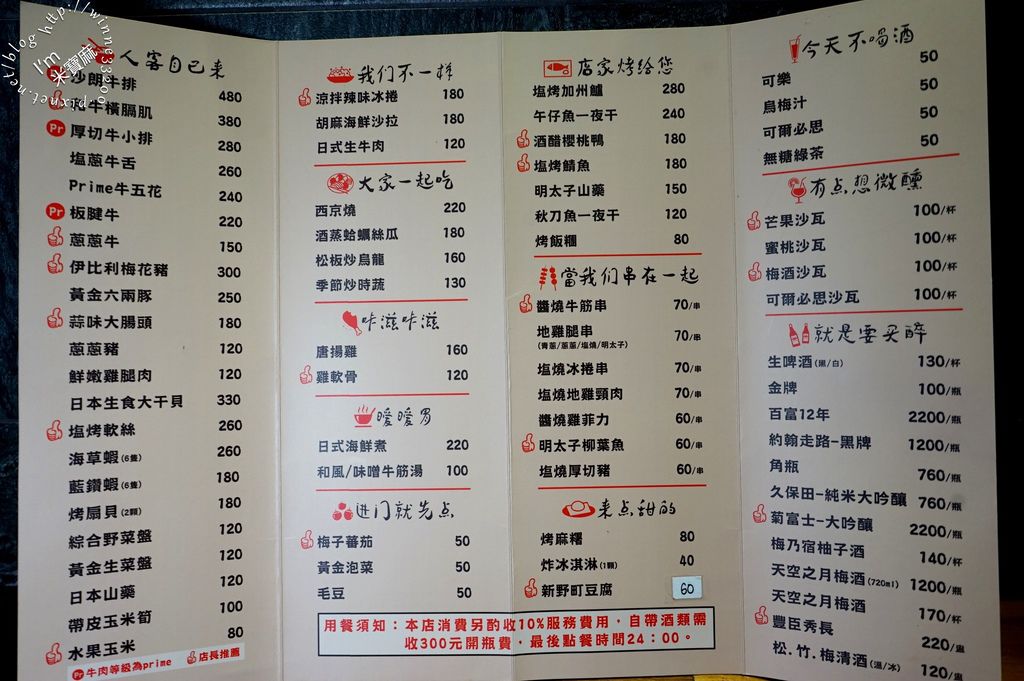 人客自己来
Pr 沙朗牛排 480
和牛橫膈肌 380
Pr 厚切牛小排 280
塩蔥牛舌 260
Prime牛五花 240
Pr 板腱牛 220
蔥蔥牛 150
伊比利梅花豬 300
黃金六兩豚 250
蒜味大腸頭 180
蔥蔥豬 120
鮮嫩雞腿肉 120
日本生食大干貝 330
塩烤軟絲 260
海草蝦(6隻) 260
藍鑽蝦(6隻) 180
烤扇貝(2顆) 180
綜合野菜盤 120
黃金生菜盤 120
日本山藥 120
帶皮玉米筍 100
水果玉米 80
Pr 牛肉等級為prime 店長推薦
我们不一样
涼拌辣味冰捲 180
胡麻海鮮沙拉 180
日式生牛肉 120
大家一起吃
西京燒 220
酒蒸蛤蠣絲瓜 180
松板炒烏龍 160
季節炒時蔬 130
咔滋咔滋
唐揚雞 160
雞軟骨 120
暧暧胃
日式海鮮煮 220
和風/味噌牛筋湯 100
进门就先点
梅子蕃茄 50
黃金泡菜 50
毛豆 50
店家烤给您
塩烤加州鱸 280
午仔魚一夜干 240
酒醋櫻桃鴨 180
塩烤鯖魚 180
明太子山藥 150
秋刀魚一夜干 120
烤飯糰 80
當我们串在一起
醬燒牛筋串 70/串
地雞腿串 70/串
(青蔥/蔥蔥/塩燒/明太子)
塩燒冰捲串 70/串
塩燒地雞頸肉 70/串
醬燒雞菲力 60/串
明太子柳葉魚 60/串
塩燒厚切豬 60/串
来点甜的
烤麻糬 80
炸冰淇淋(1顆) 40
新野町豆腐 60
用餐須知：本店消費另酌收10%服務費用，自帶酒類需
收300元開瓶費，最後點餐時間24：00。
今天不喝酒
可樂 50
烏梅汁 50
可爾必思 50
無糖綠茶 50
有点想微醺
芒果沙瓦 100/杯
蜜桃沙瓦 100/杯
梅酒沙瓦 100/杯
可爾必思沙瓦 100/杯
就是要买醉
生啤酒(黑/白) 130/杯
金牌 100/瓶
百富12年 2200/瓶
約翰走路-黑牌 1200/瓶
角瓶 760/瓶
久保田-純米大吟釀 760/瓶
菊富士-大吟釀 2200/瓶
梅乃宿柚子酒 140/杯
天空之月梅酒(720ml) 1200/瓶
天空之月梅酒 170/杯
豐臣秀長 220/盅
松.竹.梅清酒(溫/冰) 120/盅
I'm 米寶麻